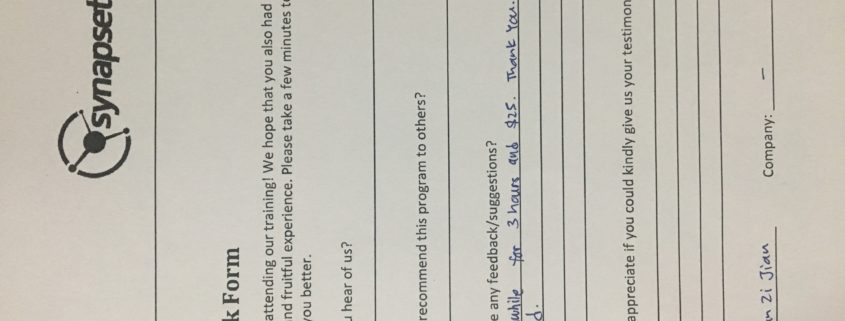 synapset
k Form
attending our training! We hope that you also had
nd fruitful experience. Please take a few minutes t
you better.
u hear of us?
recommend this program to others?
e any feedback/suggestions?
while for 3 hours and $25. Thank You.
d.
appreciate if you could kindly give us your testimon
n Zi Jian Company: –